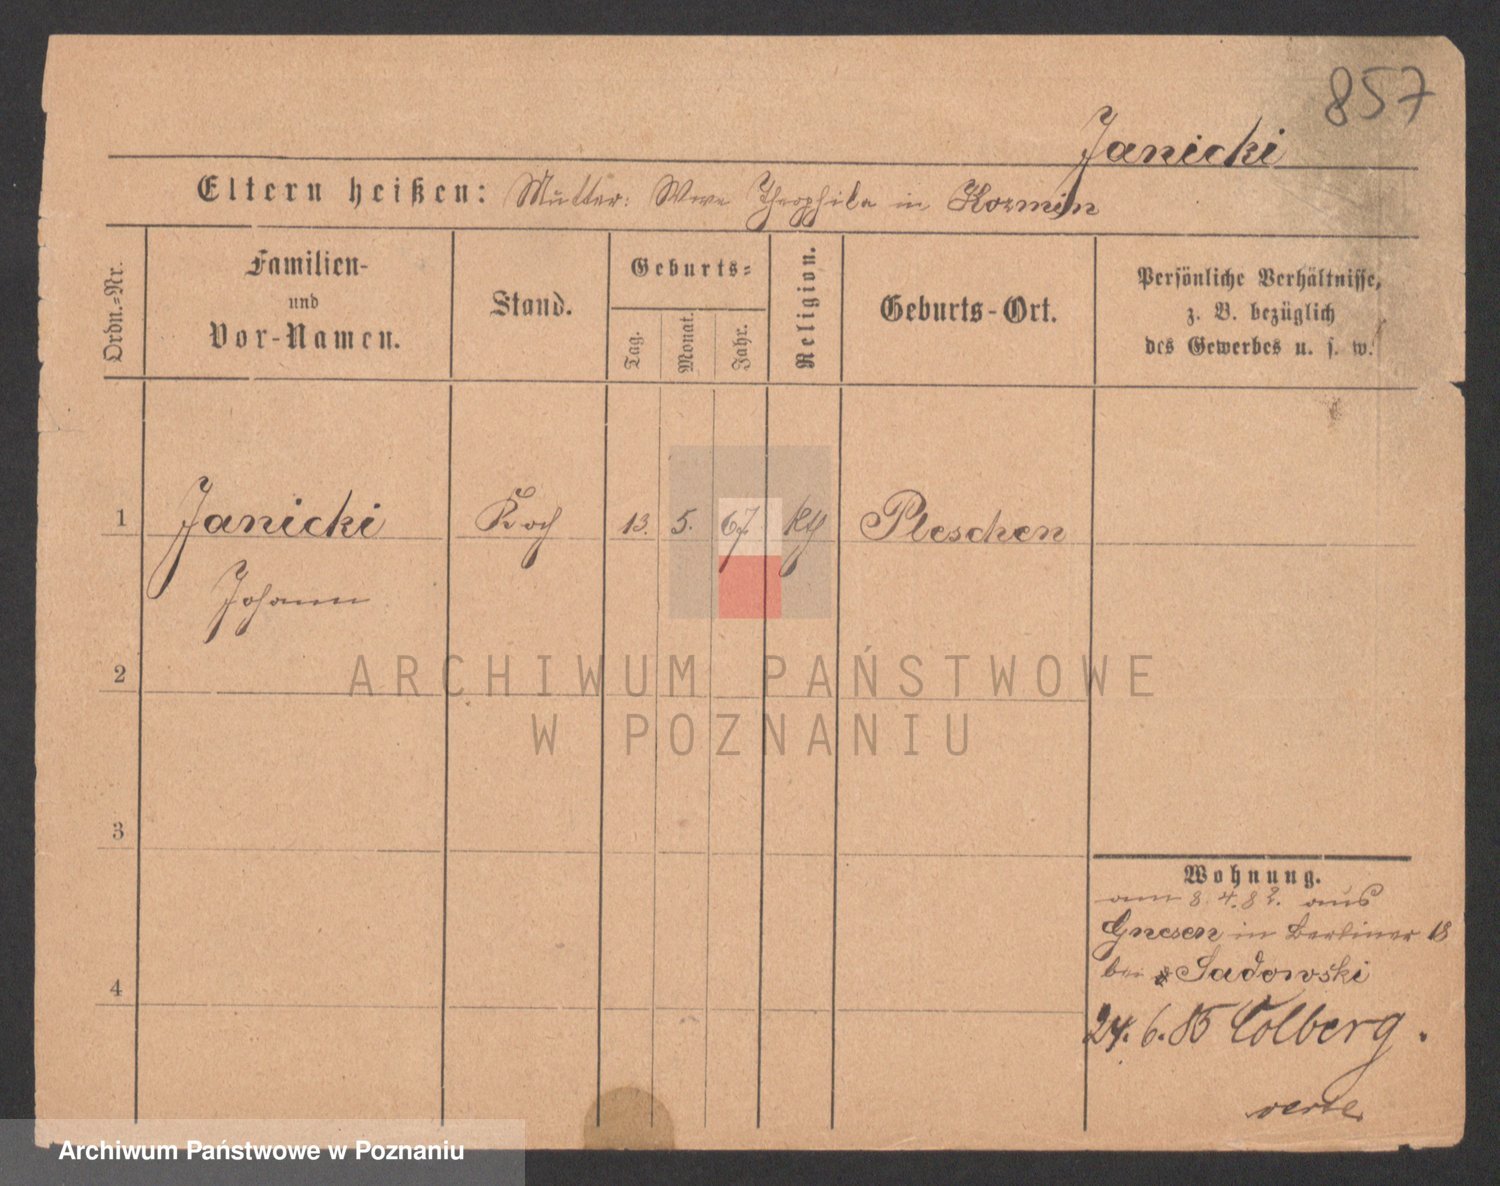 857
Janicki
Eltern heißen: Mutter: Wwe Theophila in Kozmin
Ordn.-Nr.
Familien-
und
Vor-Namen.
Stand.
Geburts-
Tag.
Monat.
Jahr.
Religion.
Geburts-Ort.
Persönliche Verhältnisse,
z. B. bezüglich
des Gewerbes u. s. w.
1 Janicki Koch 13. 5. 67. Pleschen
Johann
2
3
4
Wohnung.
am 8.4.82. aus
Gnesen in Berliner 18
bei Sadowski
24.6.85 Colberg.
ARCHIWUM PAŃSTWOWE
W POZNANIU
Archiwum Państwowe w Poznaniu